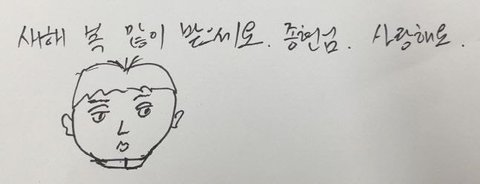 새해 복 많이 받으세요. 종현님. 사랑해요.